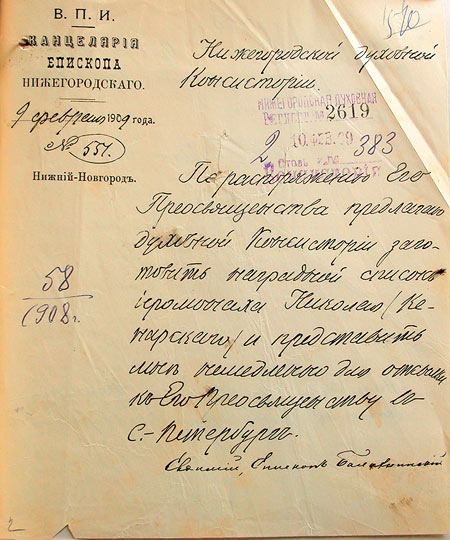 В. П. И.
КАНЦЕЛЯРІЯ
ЕПИСКОПА
НИЖЕГОРОДСКАГО.
9 февраля 1909 года.
№ 551.
Нижній-Новгородъ.
Нижегородской духовной
Консисторіи.
НИЖЕГОРОДСКАЯ ДУХОВНАЯ
2619
10 ФЕВ. 09
2
383
По распоряженію Его
Преосвященства предлагаю
духовной Консисторіи заго-
товить наградной списокъ
іеромонаха Николая /Ке-
нарскаго/ и представить
мнѣ немедленно для отсылки
къ Его Преосвященству въ
С.-Петербургъ.
58
1908 г.
Епископъ Балахнинскій
2